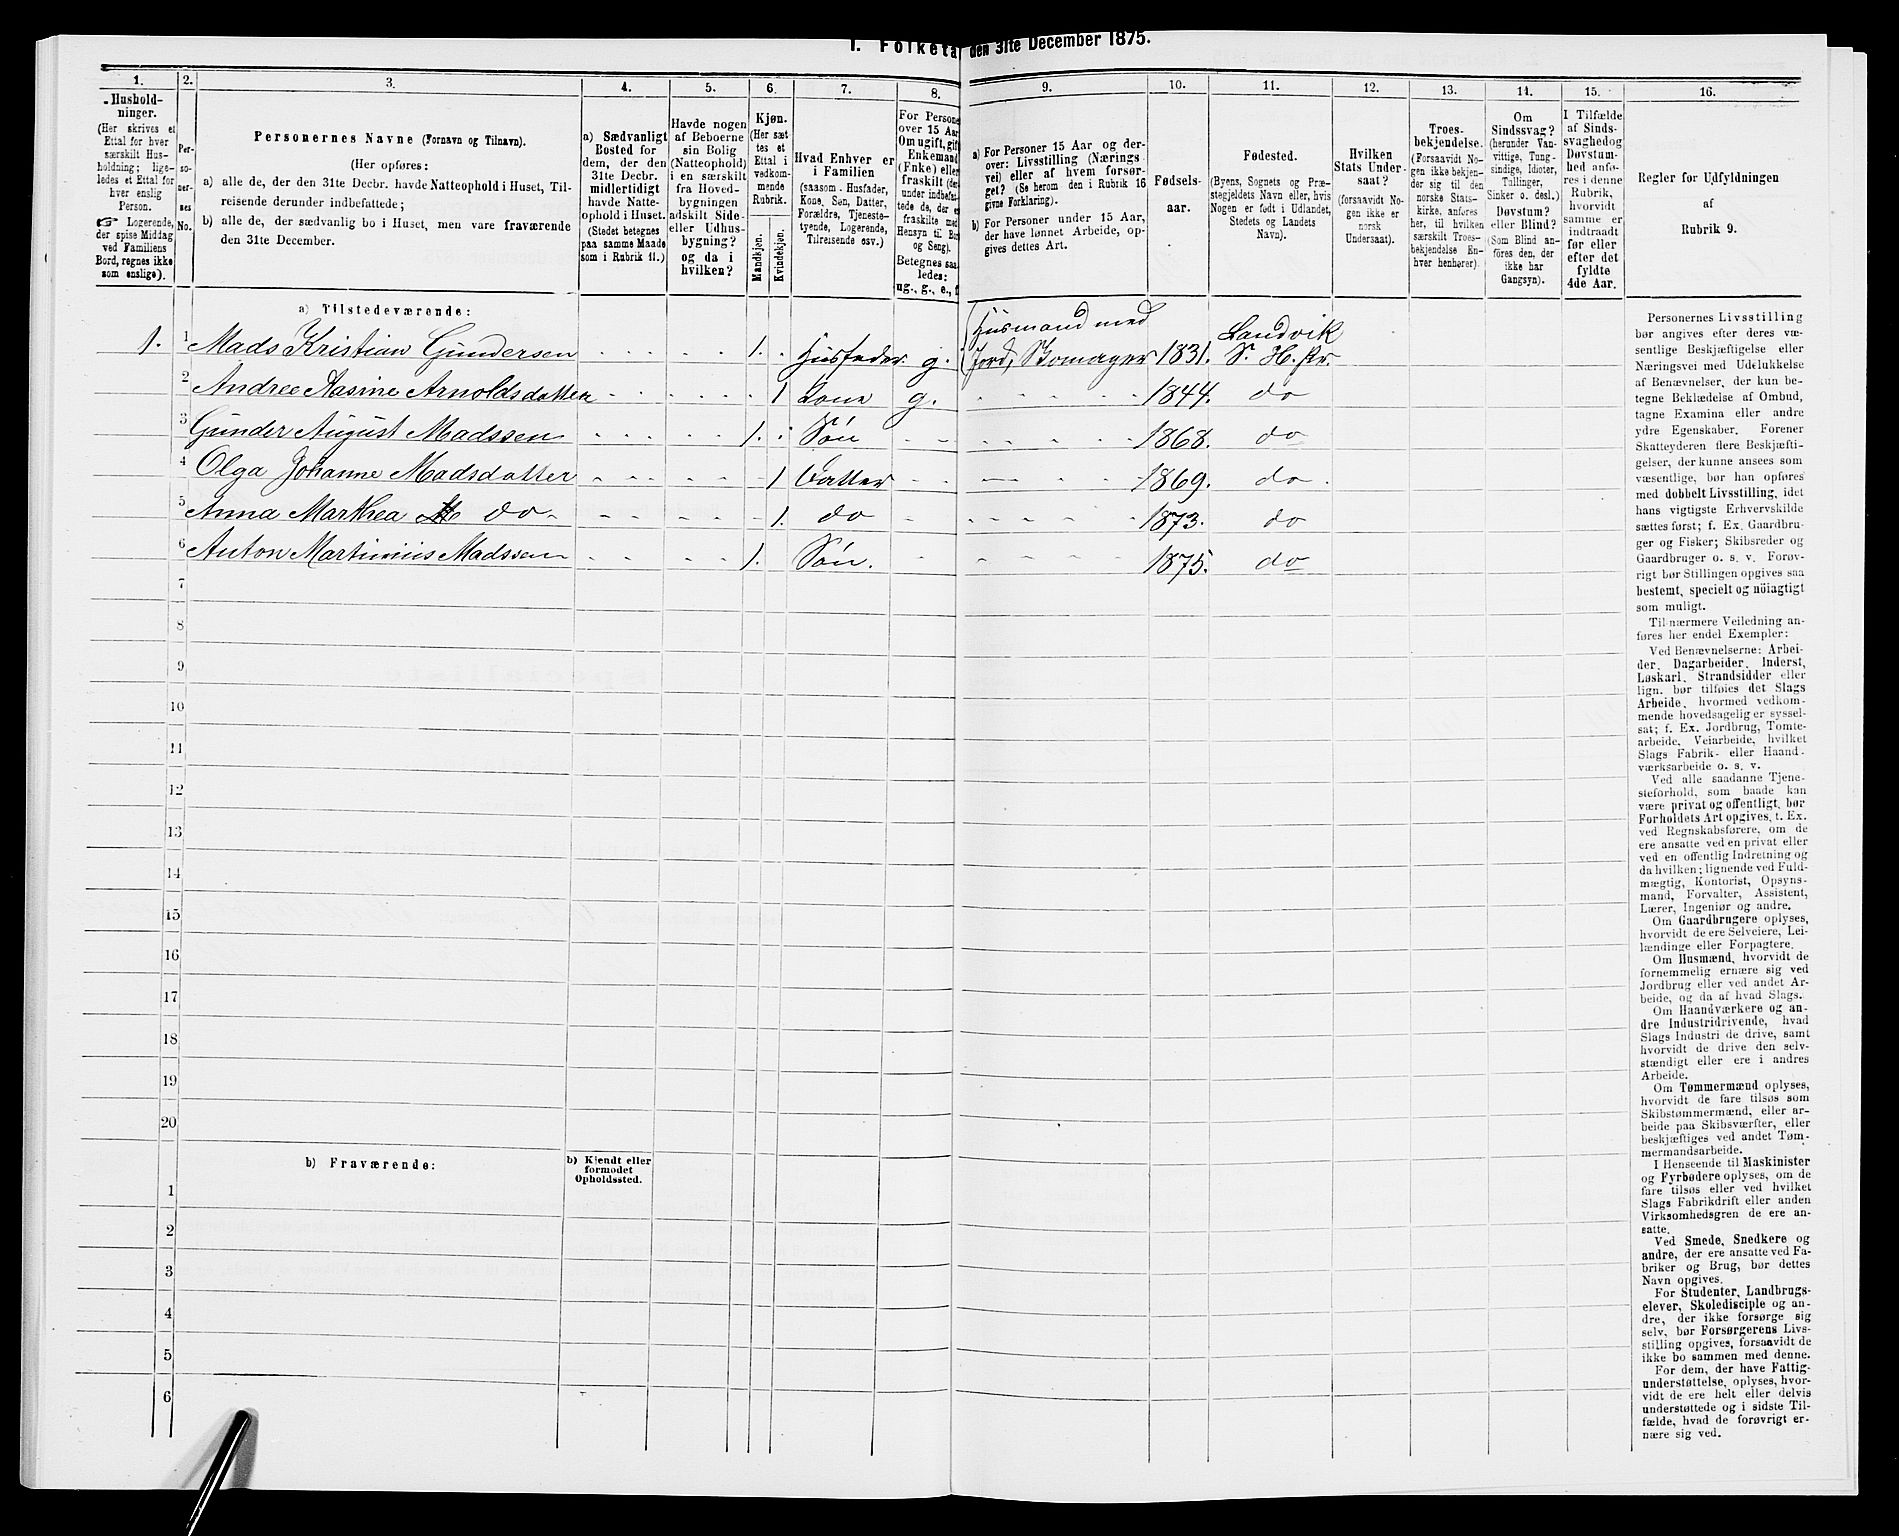 I. Folketæ den 31te December 1875.
1. 2. 3. 4. 5. 6. 7. 8. 9. 10. 11. 12. 13. 14. 15. 16.
Hushold-
ninger.
(Her skrives et
Ettal for hver
særskilt Hus-
holdning; lige-
ledes et Ettal for
hver enslig
Person.
☞ Logerende,
der spise Middag
ved Familiens
Bord, regnes ikke
som enslige).
Per-
so-
ner-
nes
No.
Personernes Navne (Fornavn og Tilnavn).
(Her opføres:
a) alle de, der den 31te Decbr. havde Natteophold i Huset, Til-
reisende derunder indbefattede;
b) alle de, der sædvanlig bo i Huset, men vare fraværende
den 31te December.
a) Sædvanligt
Bosted for
dem, der den
31te Decbr.
midlertidigt
havde Natte-
ophold i Huset.
(Stedet betegnes
paa samme Maade
som i Rubrik 11.)
Havde nogen
af Beboerne
sin Bolig
(Natteophold)
i en særskilt
fra Hoved-
bygningen
adskilt Side-
eller Udhus-
bygning?
og da i
hvilken?
Kjøn.
(Her sæt
tes et
Ettal i
vedkom-
mende
Rubrik.
Mandkjøn.
Kvindekjøn.
Hvad Enhver er
i Familien
(saasom Husfader,
Kone, Søn, Datter,
Forældre, Tjeneste-
tyende, Logerende,
Tilreisende osv.)
For Persone
over 15 Aar
Om ugift, gift
Enkemand
(Enke) eller
fraskilt (der
under indbefat
tede de, der er
fraskilte med
Hensyn til Bo
og Seng).
Betegnes saa
ledes:
ug., g., e., f
a) For Personer 15 Aar og der-
over: Livsstilling (Nærings
vei) eller af hvem forsør-
get? (Se herom den i Rubrik 16
givne Forklaring).
b) For Personer under 15 Aar,
der have lønnet Arbeide, op-
gives dettes Art.
Fødsels-
aar.
Fødested.
(Byens, Sognets og Præ-
stegjeldets Navn eller, hvis
Nogen er født i Udlandet,
Stedets og Landets
Navn).
Hvilken
Stats Under-
saat?
(forsaavidt No-
gen ikke er
norsk
Undersaat).
Troes-
bekjendelse.
(Forsaavidt No-
gen ikke bekjen-
der sig til den
norske Stats-
kirke, anføres
her, til hvilken
særskilt Troes-
bekjendelse En-
hver henhører).
Om
Sindssvag?
(herunder Van-
vittige, Tung-
sindige, Idioter,
Tullinger,
Sinker o. desl.)
Døvstum?
eller Blind?
(Som Blind an-
føres den, der
ikke har
Gangsyn).
I Tilfælde
af Sinds-
svaghed og
Døvstum-
hed anfø-
res i denne
Rubrik,
hvorvidt
samme er
indtraadt
før eller
efter det
fyldte
4de Aar.
Regler for Udfyldningen
af
Rubrik 9.
a) Tilstedeværende:
1. 1 Mads Kristian Gundersen 1. Husfader g. Husmand med Jord, Skomager 1831. Landvik S. H. Pr.
2 Andrea Aasine Arnoldsdatter 1 Kone g. 1844. do
3 Gunder August Madssen 1. Søn 1868. do
4 Olga Johanne Madsdatter 1 Datter 1869. do
5 Anna Marthea do 1. do 1873. do
6 Anton Martinius Madssen 1. Søn. 1875. do
7
8
9
10
11
12
13
14
15
16
17
18
19
20
b) Fraværende:
b) Kjendt eller
formodet
Opholdssted.
1
2
3
4
5
6
Personernes Livsstilling
bør angives efter deres væ-
sentlige Beskjæftigelse eller
Næringsvei med Udelukkelse
af Benævnelser, der kun be-
tegne Beklædelse af Ombud,
tagne Examina eller andre
ydre Egenskaber. Forener
Skatteyderen flere Beskjæfti-
gelser, der kunne ansees som
væsentlige, bør han opføres
med dobbelt Livsstilling, idet
hans vigtigste Erhvervskilde
sættes først; f. Ex. Gaardbru-
ger og Fisker; Skibsreder og
Gaardbruger o. s. v. Forøv-
rigt bør Stillingen opgives saa
bestemt, specielt og nöiagtigt
som muligt.
Til nærmere Veiledning an-
føres her endel Exempler:
Ved Benævnelserne: Arbei-
der, Dagarbeider, Inderst,
Løskarl, Strandsidder eller
lign. bør tilføies det Slags
Arbeide, hvormed vedkom-
mende hovedsagelig er syssel-
sat; f. Ex. Jordbrug, Tomte-
arbeide, Veiarbeide, hvilket
Slags Fabrik- eller Haand-
værksarbeide o. s. v.
Ved alle saadanne Tjene-
steforhold, som baade kan
være privat og offentligt, bør
Forholdets Art opgives, t. Ex.
ved Regnskabsførere, om de
ere ansatte ved en privat eller
ved en offentlig Indretning og
da hvilken; lignende ved Fuld-
mægtig, Kontorist, Opsyns-
mand, Forvalter, Assistent,
Lærer, Ingeniør og andre.
Om Gaardbrugere oplyses,
hvorvidt de ere Selveiere, Lei-
lændinge eller Forpagtere.
Om Husmænd, hvorvidt de
fornemmelig ernære sig ved
Jordbrug eller ved andet Ar-
beide, og da af hvad Slags.
Om Haandværkere og an-
dre Industridrivende, hvad
Slags Industri de drive, samt
hvorvidt de drive den selv-
stændigt eller ere i andres
Arbeide.
Om Tømmermænd oplyses,
hvorvidt de fare tilsøs som
Skibstømmermænd, eller ar-
beide paa Skibsværfter, eller
beskjæftiges ved andet Tøm-
mermandsarbeide.
I Henseende til Maskinister
og Fyrbødere oplyses, om de
fare tilsøs eller ved hvilket
Slags Fabrikdrift eller anden
Virksomhedsgren de ere an-
satte.
Ved Smede, Snedkere og
andre, der ere ansatte ved Fa-
briker og Brug, bør dettes
Navn opgives.
For Studenter, Landbrugs-
elever, Skoledisciple og an-
dre, der ikke forsørge sig
selv, bør Forsørgerens Livs-
stilling opgives, forsaavidt de
ikke bo sammen med denne.
For dem, der have Fattig-
understøttelse, oplyses, hvor-
vidt de ere helt eller delvis
understøttede og i sidste Til-
fælde, hvad de forøvrigt er-
nære sig ved.